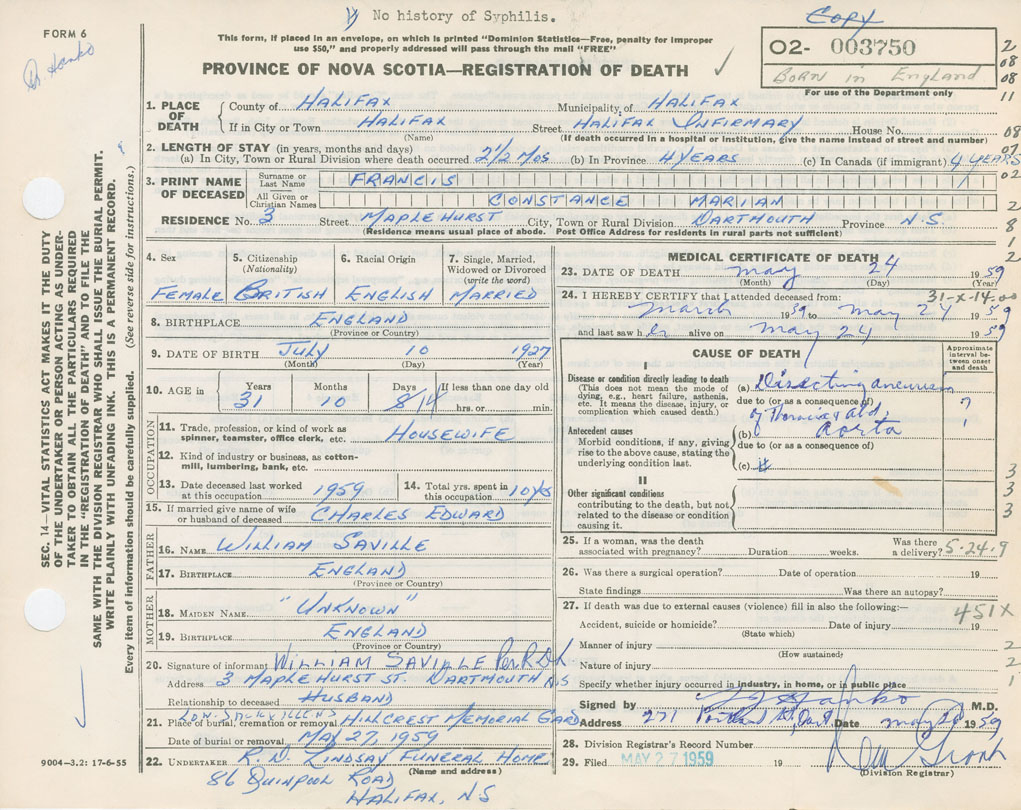 No history of Syphilis.
Copy
FORM 6
This form, if placed in an envelope, on which is printed "Dominion Statistics—Free, penalty for improper
use $50," and properly addressed will pass through the mail "FREE"
02- 003750
Born in England
For use of the Department only
PROVINCE OF NOVA SCOTIA—REGISTRATION OF DEATH
Dr. Hanko
1. PLACE OF DEATH
County of HALIFAX Municipality of HALIFAX
If in City or Town HALIFAX Street HALIFAX INFIRMARY House No.
(Name) (If death occurred in a hospital or institution, give the name instead of street and number)
2. LENGTH OF STAY (in years, months and days)
(a) In City, Town or Rural Division where death occurred 2 1/2 MOS (b) In Province 4 YEARS (c) In Canada (if immigrant) 4 YEARS
3. PRINT NAME OF DECEASED
Surname or Last Name FRANCIS
All Given or Christian Names CONSTANCE MARIAN
RESIDENCE No. 3 Street MAPLEHURST City, Town or Rural Division DARTMOUTH Province N.S
(Residence means usual place of abode. Post Office Address for residents in rural parts not sufficient)
4. Sex
FEMALE
5. Citizenship (Nationality)
BRITISH
6. Racial Origin
ENGLISH
7. Single, Married, Widowed or Divorced (write the word)
MARRIED
8. BIRTHPLACE ENGLAND
(Province or Country)
9. DATE OF BIRTH July 10 1927
(Month) (Day) (Year)
10. AGE in
Years Months Days If less than one day old
31 10 8/14 hrs. or min.
OCCUPATION
11. Trade, profession, or kind of work as spinner, teamster, office clerk, etc. HOUSEWIFE
12. Kind of industry or business, as cotton-mill, lumbering, bank, etc.
13. Date deceased last worked at this occupation 1959
14. Total yrs. spent in this occupation 10 YRS
15. If married give name of wife or husband of deceased CHARLES EDWARD
FATHER
16. NAME WILLIAM SAVILLE
17. BIRTHPLACE ENGLAND
(Province or Country)
MOTHER
18. MAIDEN NAME "UNKNOWN"
19. BIRTHPLACE ENGLAND
(Province or Country)
20. Signature of informant WILLIAM SAVILLE Per R.D.L
Address 3 MAPLEHURST ST. DARTMOUTH N.S
Relationship to deceased HUSBAND
21. Place of burial, cremation or removal HILLCREST MEMORIAL GARD
Date of burial or removal MAY 27, 1959
22. UNDERTAKER R.D. LINDSAY FUNERAL HOME
(Name and address)
86 QUINPOOL ROAD
HALIFAX, N.S
MEDICAL CERTIFICATE OF DEATH
23. DATE OF DEATH May 24 1959
(Month) (Day) (Year)
31-X-14.00
24. I HEREBY CERTIFY that I attended deceased from:
March 1959 to May 24 1959
and last saw her alive on May 24 1959
CAUSE OF DEATH
Approximate interval between onset and death
I
Disease or condition directly leading to death
(This does not mean the mode of dying, e.g., heart failure, asthenia, etc. It means the disease, injury, or complication which caused death.)
(a) Disecting aneurism
due to (or as a consequence of)
of Thoracic & Abd.
Antecedent causes
Morbid conditions, if any, giving rise to the above cause, stating the underlying condition last.
(b) Aorta
due to (or as a consequence of)
(c)
II
Other significant conditions
contributing to the death, but not related to the disease or condition causing it.
25. If a woman, was the death associated with pregnancy? Duration weeks. Was there a delivery? 5-24.9
26. Was there a surgical operation? Date of operation 19
State findings Was there an autopsy?
27. If death was due to external causes (violence) fill in also the following:— 451X
Accident, suicide or homicide? Date of injury 19
(State which)
Manner of injury
(How sustained)
Nature of injury
Specify whether injury occurred in industry, in home, or in public place
Signed by Hanko M.D.
Address 271 Portland St, Dart Date May 1959
28. Division Registrar's Record Number
29. Filed MAY 27 1959 19
(Division Registrar)
SEC. 14—VITAL STATISTICS ACT MAKES IT THE DUTY
OF THE UNDERTAKER OR PERSON ACTING AS UNDER-
TAKER TO OBTAIN ALL THE PARTICULARS REQUIRED
IN THE "REGISTRATION OF DEATH" AND TO FILE THE
SAME WITH THE DIVISION REGISTRAR WHO SHALL ISSUE THE BURIAL PERMIT.
WRITE PLAINLY WITH UNFADING INK. THIS IS A PERMANENT RECORD.
Every item of information should be carefully supplied. (See reverse side for instructions.)
9004-3.2: 17-6-55
2
08
08
11
08
07
02
2
8
1
2
3
3
3
3
2
2
1